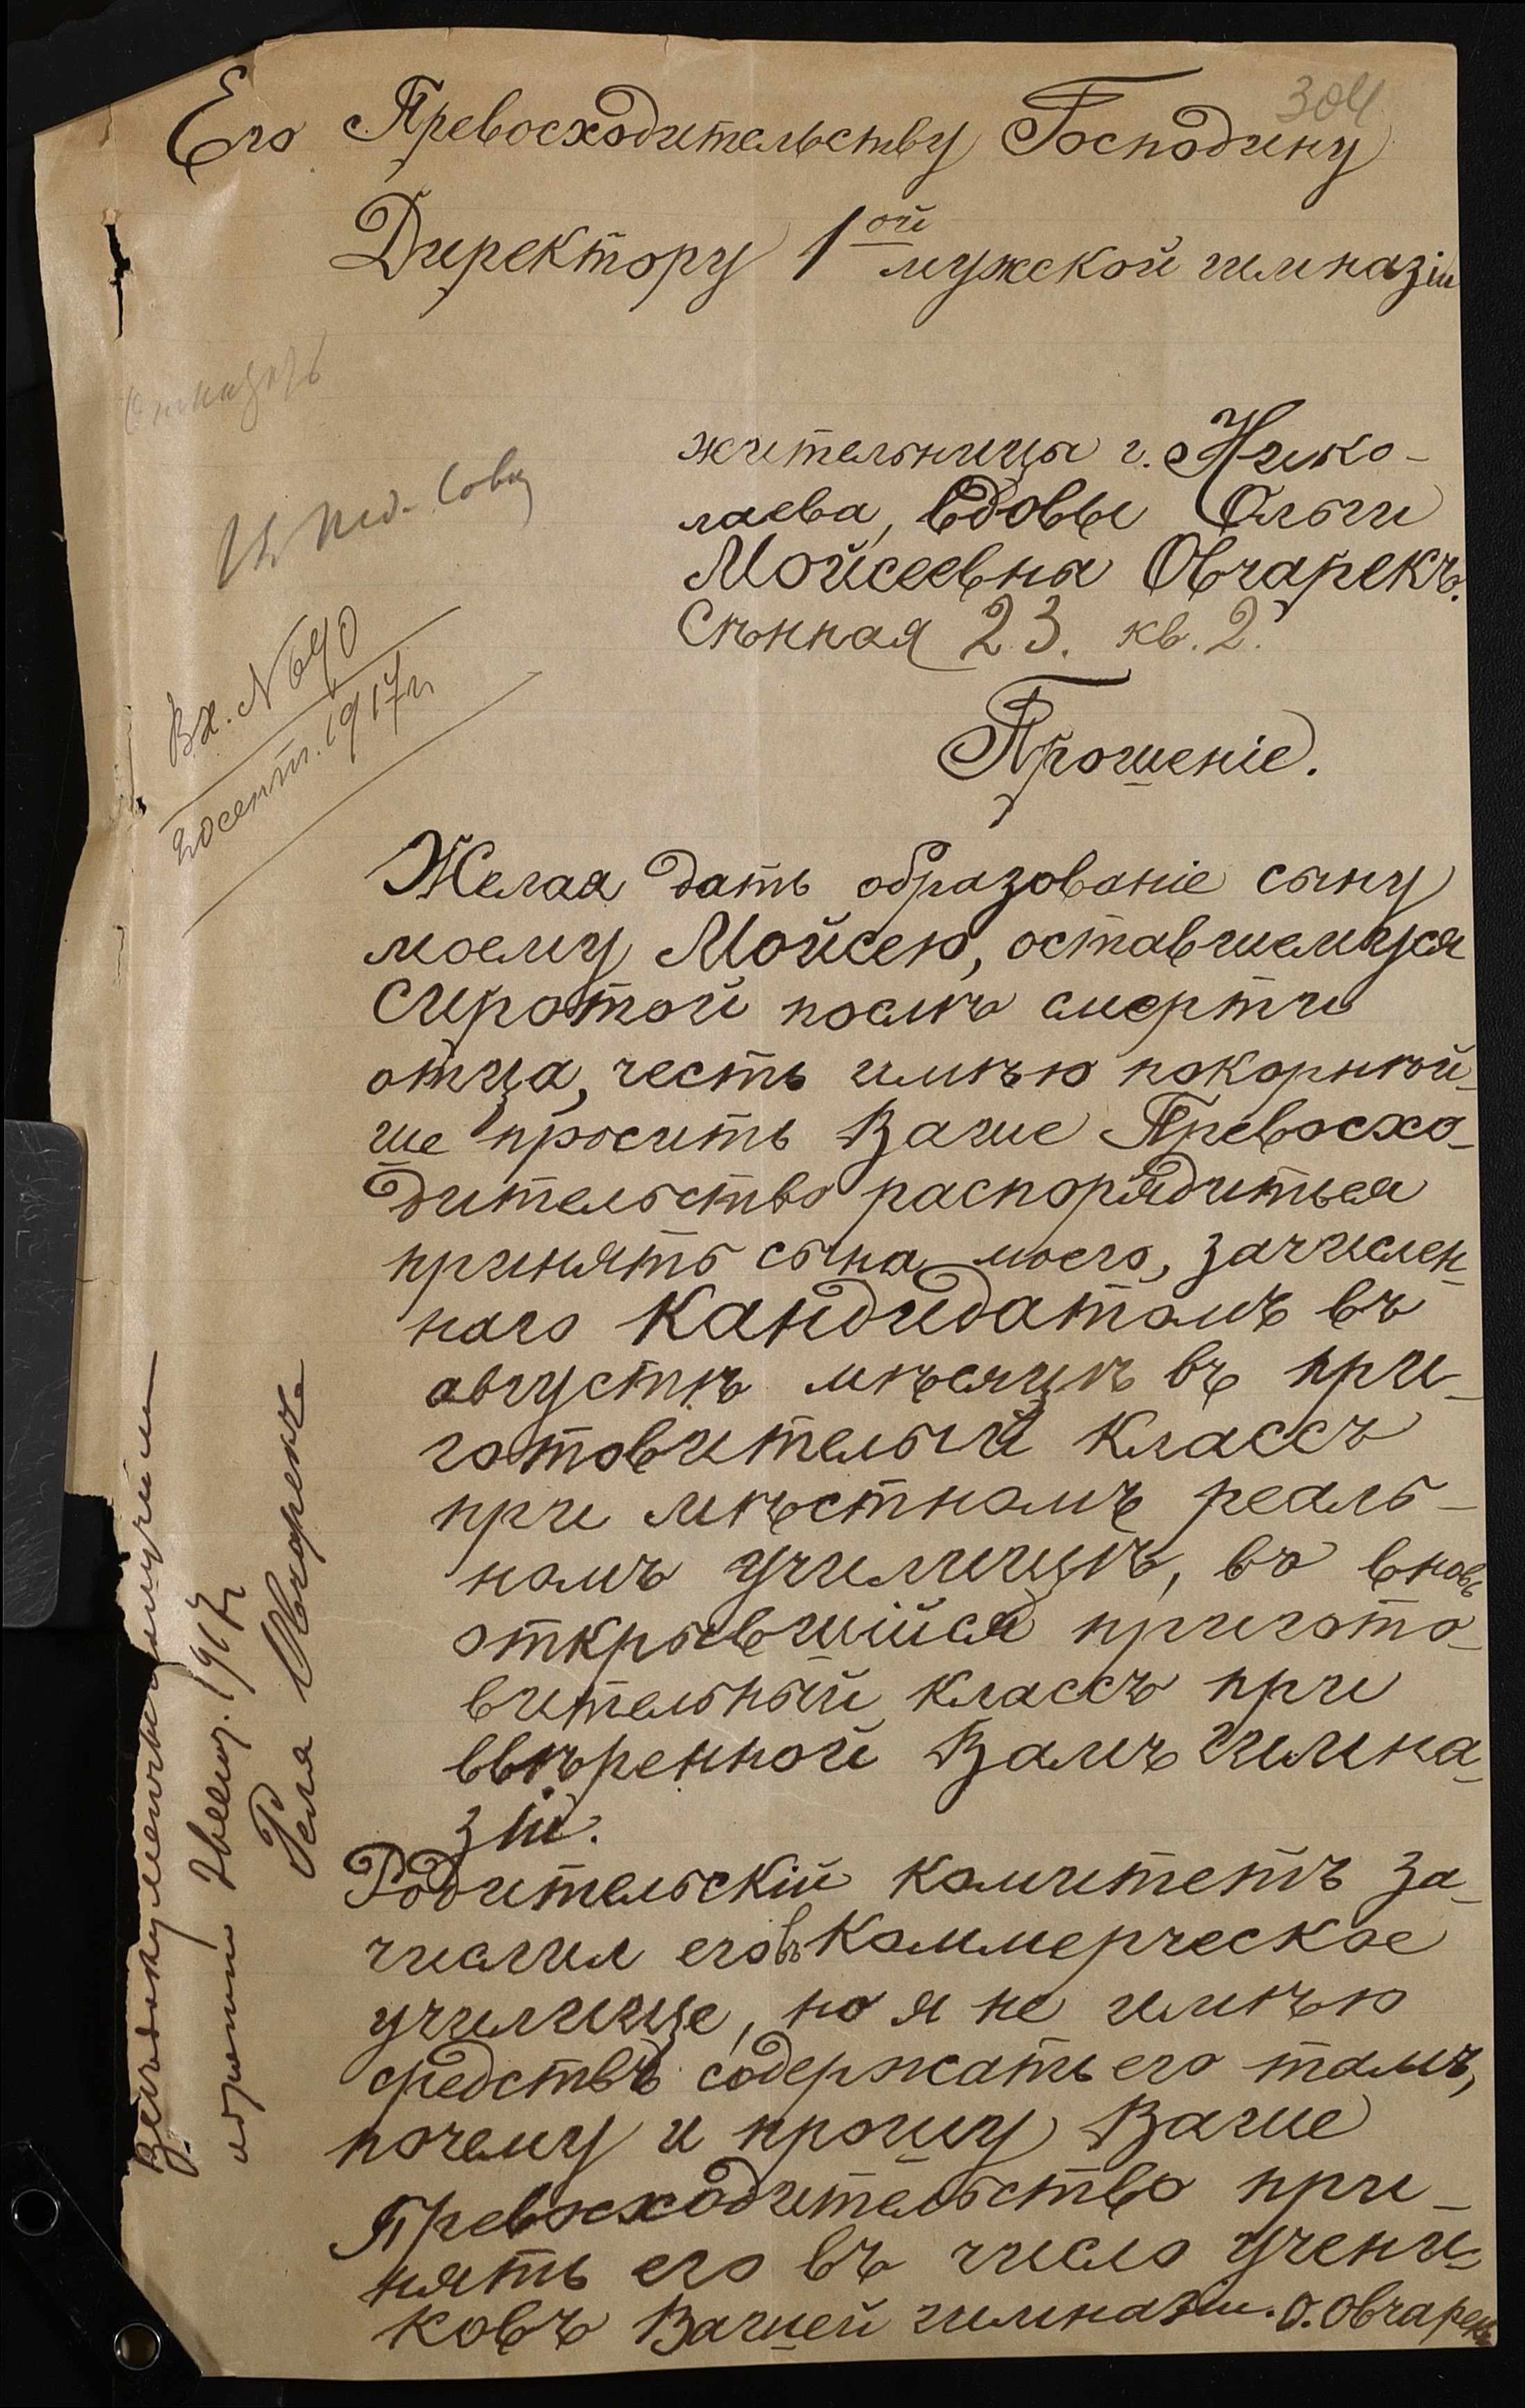 304
Его Превосходительству Господину
Директору 1ой мужской гимназіи
Отказать
Въ Пед. Сов.
Вх. N 640
20 сент. 1917 г.
жительницы г. Нико-
лаева, вдовы Ольги
Мойсеевна Овчарекъ.
Сѣнная 23. кв. 2.
Прошеніе.
Желая дать образованіе сыну
моему Мойсею, оставшемуся
сиротой послѣ смерти
отца, честь имѣю покорнѣй-
ше просить Ваше Превосхо-
дительство распорядиться
принять сына моего, зачислен-
наго кандидатомъ въ
августѣ мѣсяцѣ въ при-
готовительый классъ
при мѣстномъ реаль-
номъ училищѣ, во вновь
открывшійся пригото-
вительный классъ при
ввѣренной Вамъ гимна-
зіи.
Родительскій комитетъ за-
числил его въ Коммерческое
училище, но я не имѣю
средствъ содержать его тамъ,
почему и прошу Ваше
Превосходительство при-
нять его въ число учени-
ковъ Вашей гимназіи. О. Овчарекъ
1917 г.
Овчарекъ